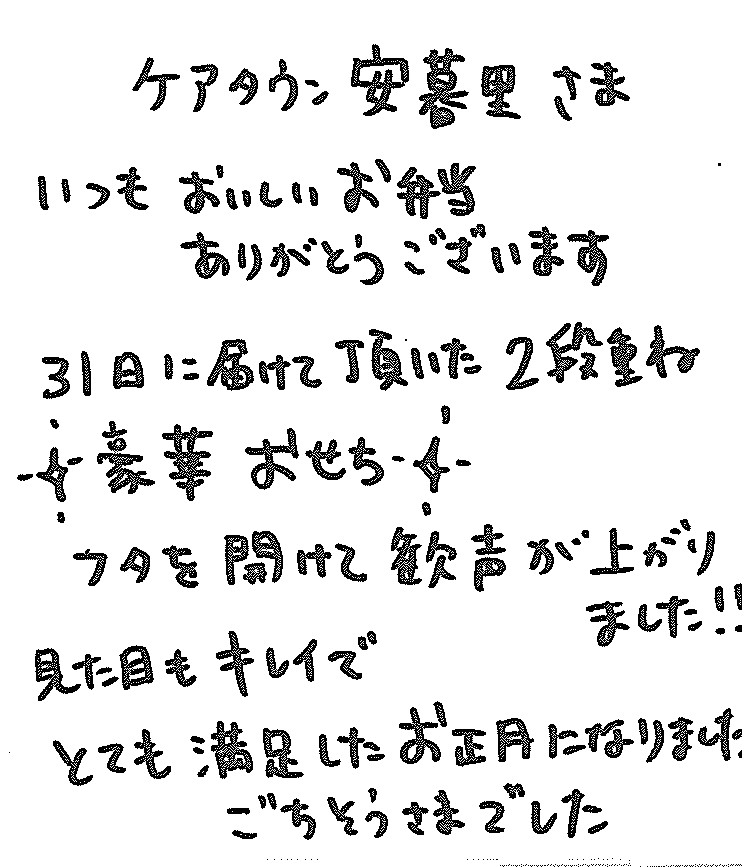 ケアタウン 安暮里 さま
いつも おいしい お弁当
ありがとう ございます
31日に届けて 頂いた 2段重ね
豪華 おせち
フタを 開けて 歓声が 上がり
ました!!
見た目も キレイで
とても 満足した お正月になりました
ごちそうさまでした